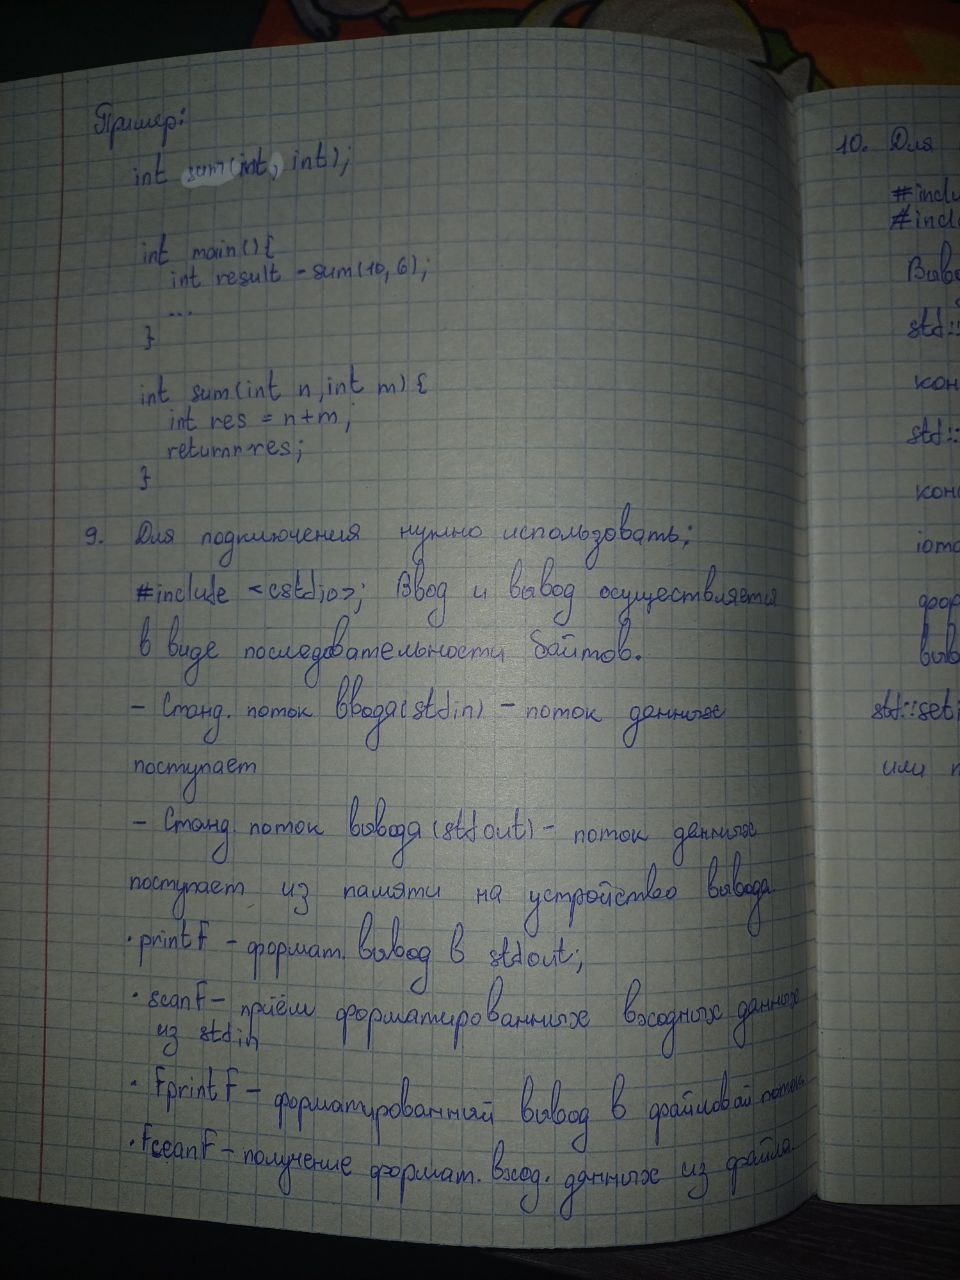 Пример:
int sum(int, int);
int main(){
int result = sum(10, 6);
...
}
int sum(int n, int m) {
int res = n+m;
return res;
}
9. Для подключения нужно использовать;
#include <cstdio>; Ввод и вывод осуществляется
в виде последовательности байтов.
- Станд. поток ввода(stdin) - поток данных
поступает
- Станд. поток вывода (stdout) - поток данных
поступает из памяти на устройство вывода
· printf - формат. вывод в stdout;
· scanf - приём форматированных входных данных
из stdin
· Fprintf - форматированный вывод в файловой поток
· Fscanf - получение формат. вход. данных из файла.
10. Для
#inclu
#incl
Выво
std::
кон
std::
кон
фор
выв
std::set
или